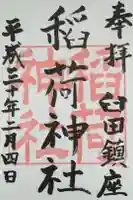 奉拝 臼田鎮座
稲荷神社
稲荷神社
平成三十年二月四日